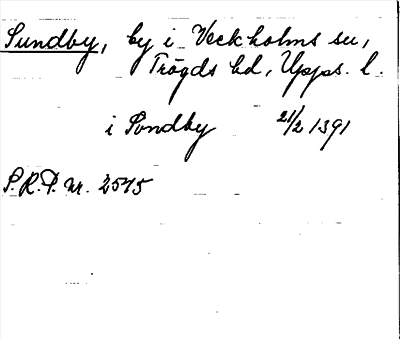 Sundby, by i Veckholms sn,
Trögds hd, Upps. l.
i Sondby 21/2 1391
S.R.P. nr. 2575